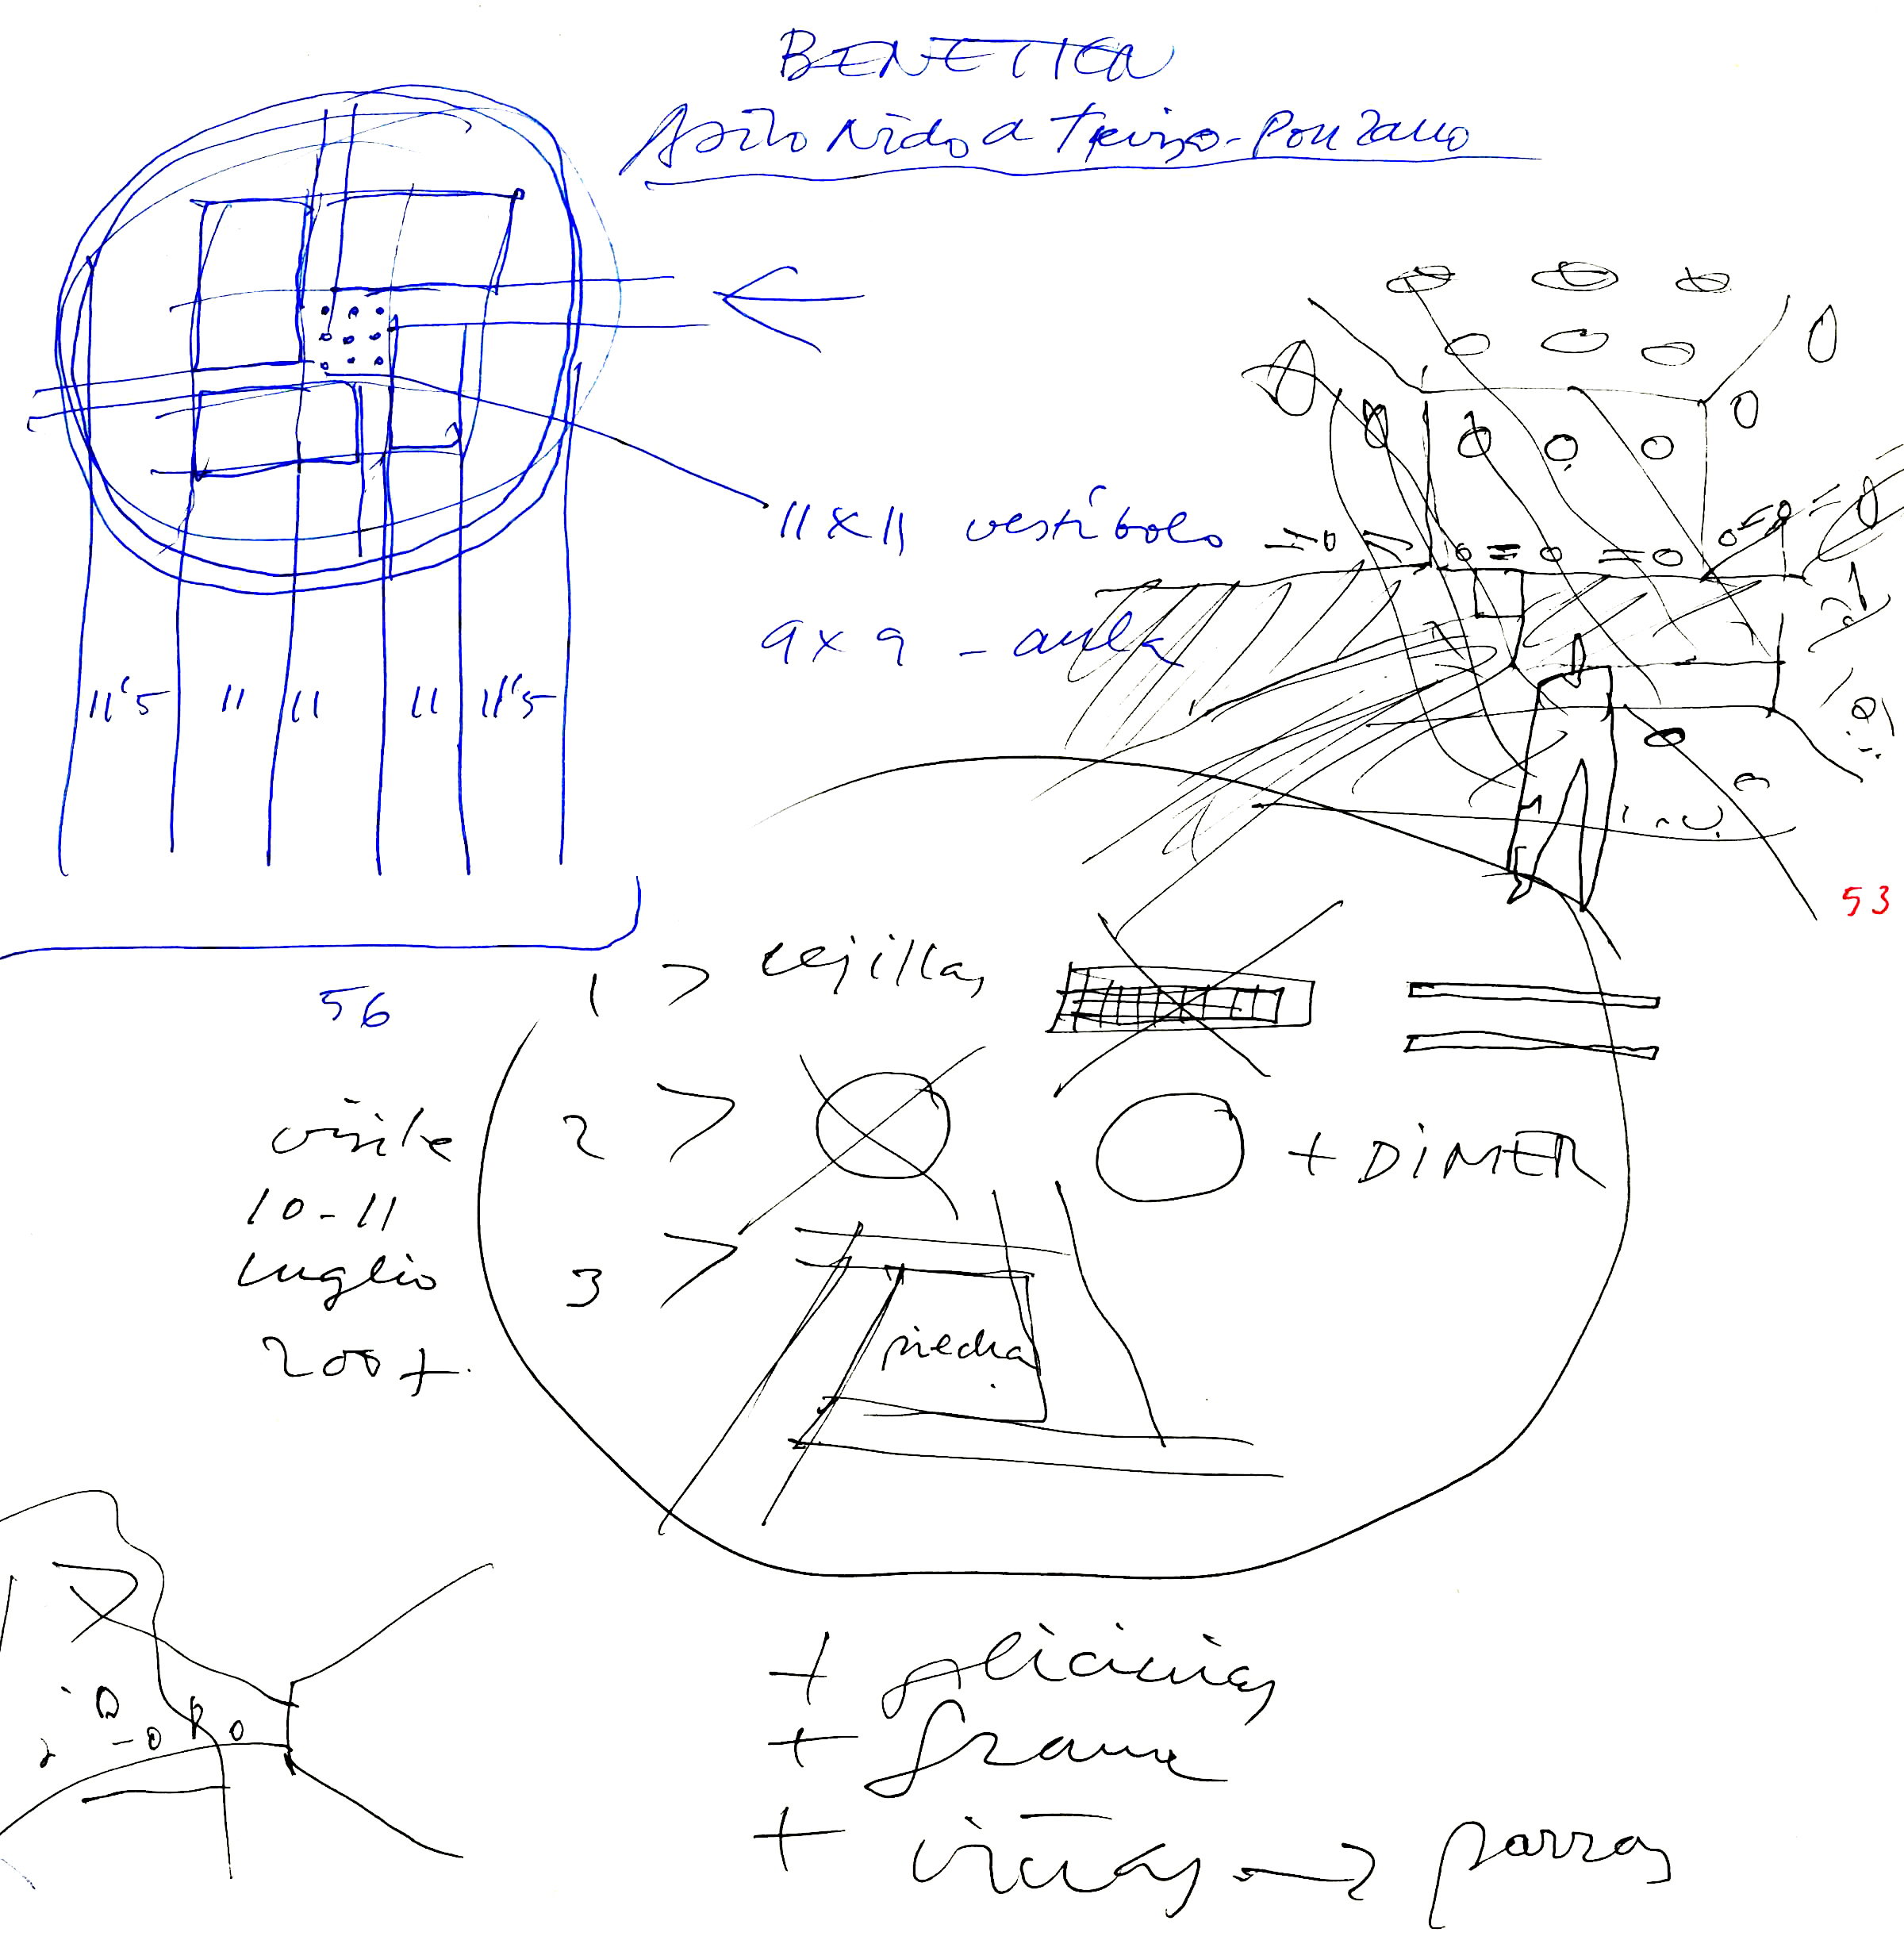 BENETTON
Asilo Nido a Treviso-Ponzano
11x11 vestíbolo
9x9 - aula
11'5 11 11 11 11'5
53
56
1 > rejillas
visite
2 > + DIMER
10-11
luglio
3 >
piedra
2007
+ glicinias
+ grava
+ viñas → parras